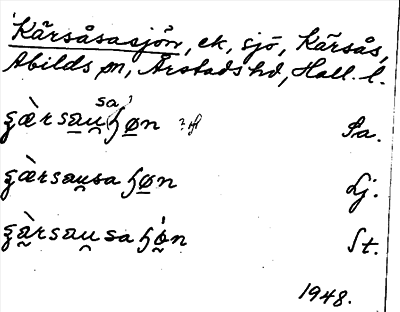 Kärsåsasjön, ek, sjö, Kärsås,
Abilds sn, Årstads hd, Hall. l.
sa
ȿæ̀rsau̯ɧøn Pa.
ȿæ̀rsau̯saɧøn Lj.
ȿæ̀rsau̯saɧøn St.
1948.